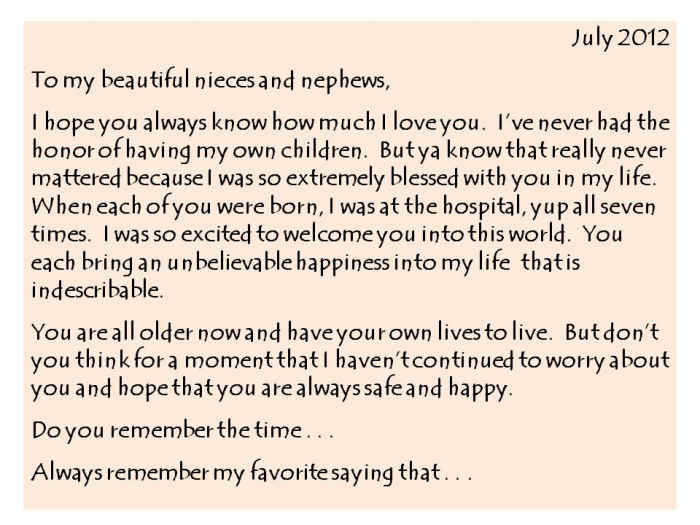 July 2012
To my beautiful nieces and nephews,
I hope you always know how much I love you.  I've never had the
honor of having my own children.  But ya know that really never
mattered because I was so extremely blessed with you in my life.
When each of you were born, I was at the hospital, yup all seven
times.  I was so excited to welcome you into this world.  You
each bring an unbelievable happiness into my life  that is
indescribable.
You are all older now and have your own lives to live.  But don't
you think for a moment that I haven't continued to worry about
you and hope that you are always safe and happy.
Do you remember the time . . .
Always remember my favorite saying that . . .